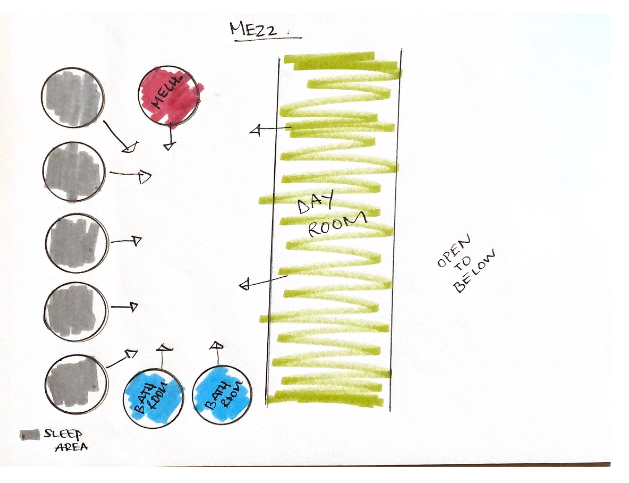 MEZZ.
MECH.
DAY
ROOM
OPEN
TO
BELOW
BATH
ROOM
BATH
ROOM
SLEEP
AREA